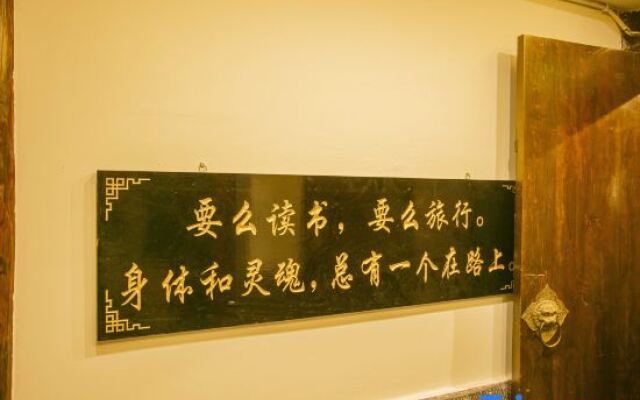 要么读书，要么旅行。
身体和灵魂，总有一个在路上。